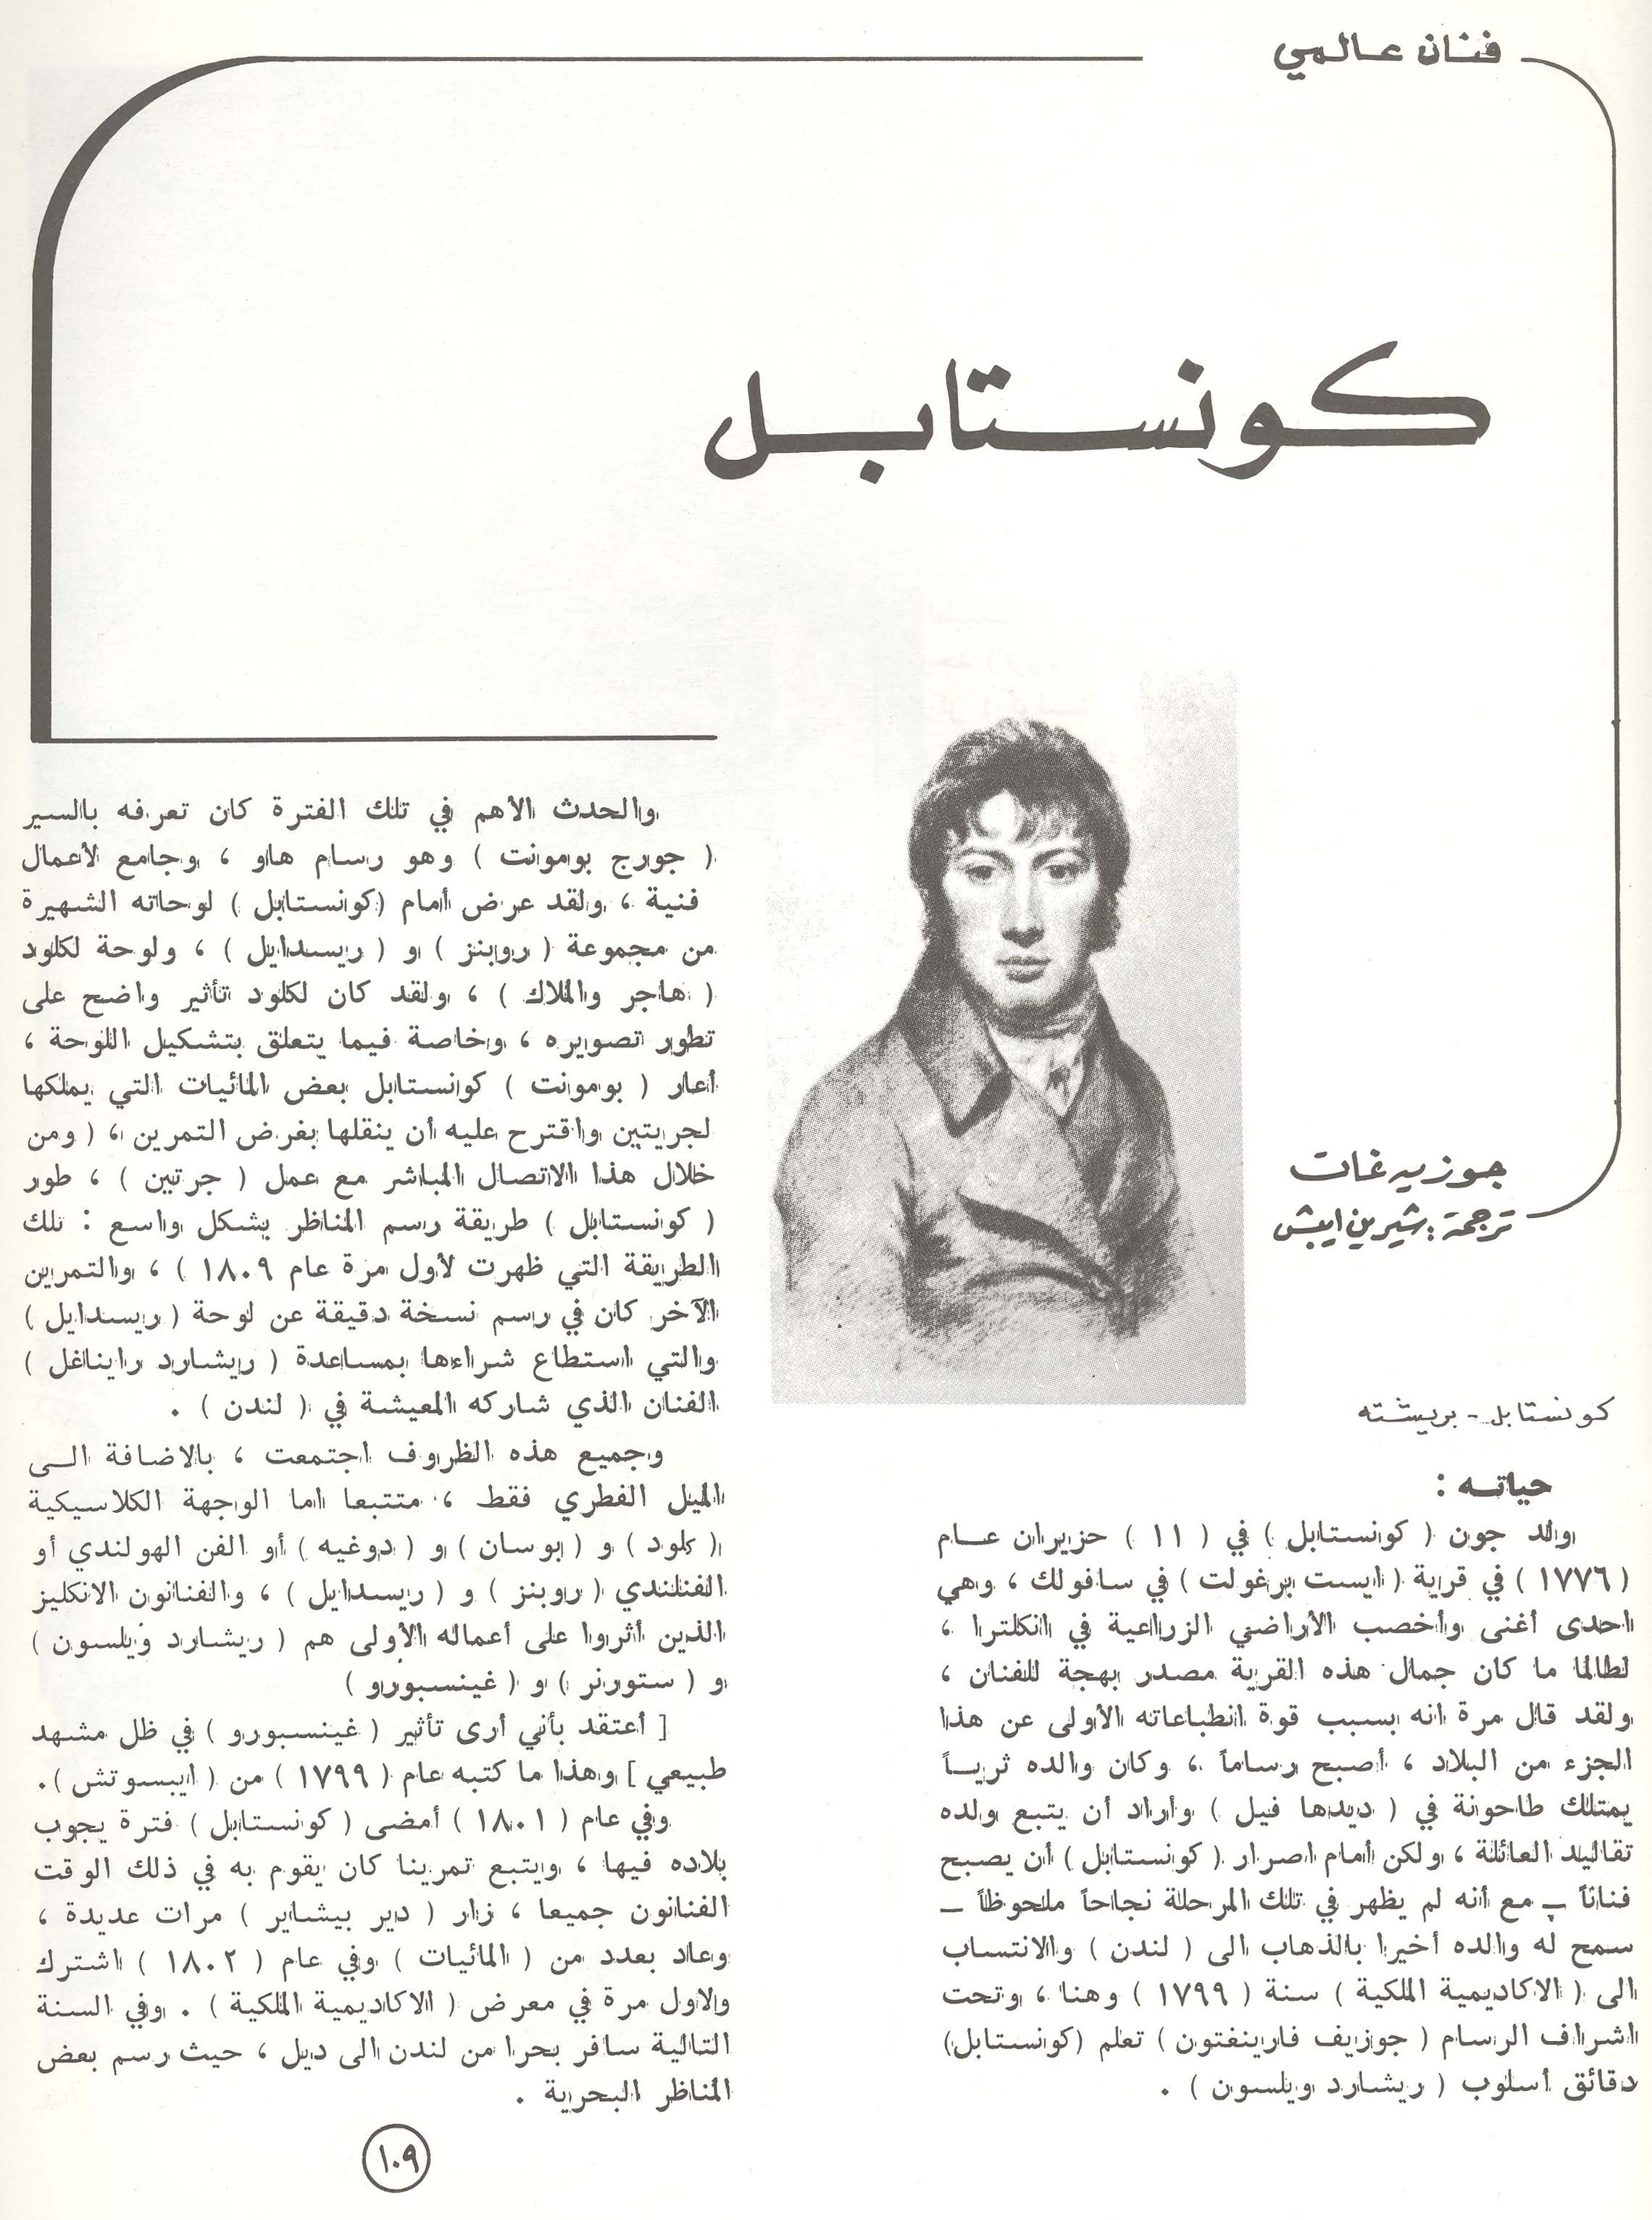 فنان عالمي
كونستابل
جوزيه غات
ترجمة : شيرين ايبش
كونستابل - بريشته
حياته :
ولد جون ( كونستابل ) في ( ١١ ) حزيران عام
( ١٧٧٦ ) في قرية ( ايست برغولت ) في سافولك ، وهي
احدى أغنى وأخصب الأراضي الزراعية في انكلترا ،
لطالما ما كان جمال هذه القرية مصدر بهجة للفنان ،
ولقد قال مرة انه بسبب قوة انطباعاته الأولى عن هذا
الجزء من البلاد ، أصبح رساماً ، وكان والده ثرياً
يمتلك طاحونة في ( ديدها فيل ) وأراد أن يتبع ولده
تقاليد العائلة ، ولكن أمام اصرار ( كونستابل ) أن يصبح
فناناً ــ مع أنه لم يظهر في تلك المرحلة نجاحاً ملحوظاً ــ
سمح له والده أخيرا بالذهاب الى ( لندن ) والانتساب
الى ( الاكاديمية الملكية ) سنة ( ١٧٩٩ ) وهنا ، وتحت
اشراف الرسام ( جوزيف فارينغتون ) تعلم (كونستابل)
دقائق أسلوب ( ريشارد ويلسون ) .
والحدث الأهم في تلك الفترة كان تعرفه بالسير
( جورج بومونت ) وهو رسام هاو ، وجامع لأعمال
فنية ، ولقد عرض أمام (كونستابل ) لوحاته الشهيرة
من مجموعة ( روبنز ) و ( ريسدايل ) ، ولوحة لكلود
( هاجر والملاك ) ، ولقد كان لكلود تأثير واضح على
تطور تصويره ، وخاصة فيما يتعلق بتشكيل اللوحة ،
أعار ( بومونت ) كونستابل بعض المائيات التي يملكها
لجريتين واقترح عليه أن ينقلها بغرض التمرين ، ( ومن
خلال هذا الاتصال المباشر مع عمل ( جرتين ) ، طور
( كونستابل ) طريقة رسم المناظر بشكل واسع : تلك
الطريقة التي ظهرت لأول مرة عام ١٨٠٩ ) ، والتمرين
الآخر كان في رسم نسخة دقيقة عن لوحة ( ريسدايل )
والتي استطاع شراءها بمساعدة ( ريشارد رايناغل )
الفنان الذي شاركه المعيشة في ( لندن ) .
وجميع هذه الظروف اجتمعت ، بالاضافة الى
الميل الفطري فقط ، متتبعا اما الوجهة الكلاسيكية
( كلود ) و ( بوسان ) و ( دوغيه ) أو الفن الهولندي أو
الفنلندي ( روبنز ) و ( ريسدايل ) ، والفنانون الانكليز
الذين أثروا على أعماله الأولى هم ( ريشارد ويلسون )
و ( ستورنر ) و ( غينسبورو )
[ أعتقد بأني أرى تأثير ( غينسبورو ) في ظل مشهد
طبيعي ] وهذا ما كتبه عام ( ١٧٩٩ ) من ( ايبسوتش ) .
وفي عام ( ١٨٠١ ) أمضى ( كونستابل ) فترة يجوب
بلاده فيها ، ويتبع تمرينا كان يقوم به في ذلك الوقت
الفنانون جميعا ، زار ( دير بيشاير ) مرات عديدة ،
وعاد بعدد من ( المائيات ) وفي عام ( ١٨٠٢ ) اشترك
ولاول مرة في معرض ( الاكاديمية الملكية ) . وفي السنة
التالية سافر بحرا من لندن الى ديل ، حيث رسم بعض
المناظر البحرية .
١٠٩